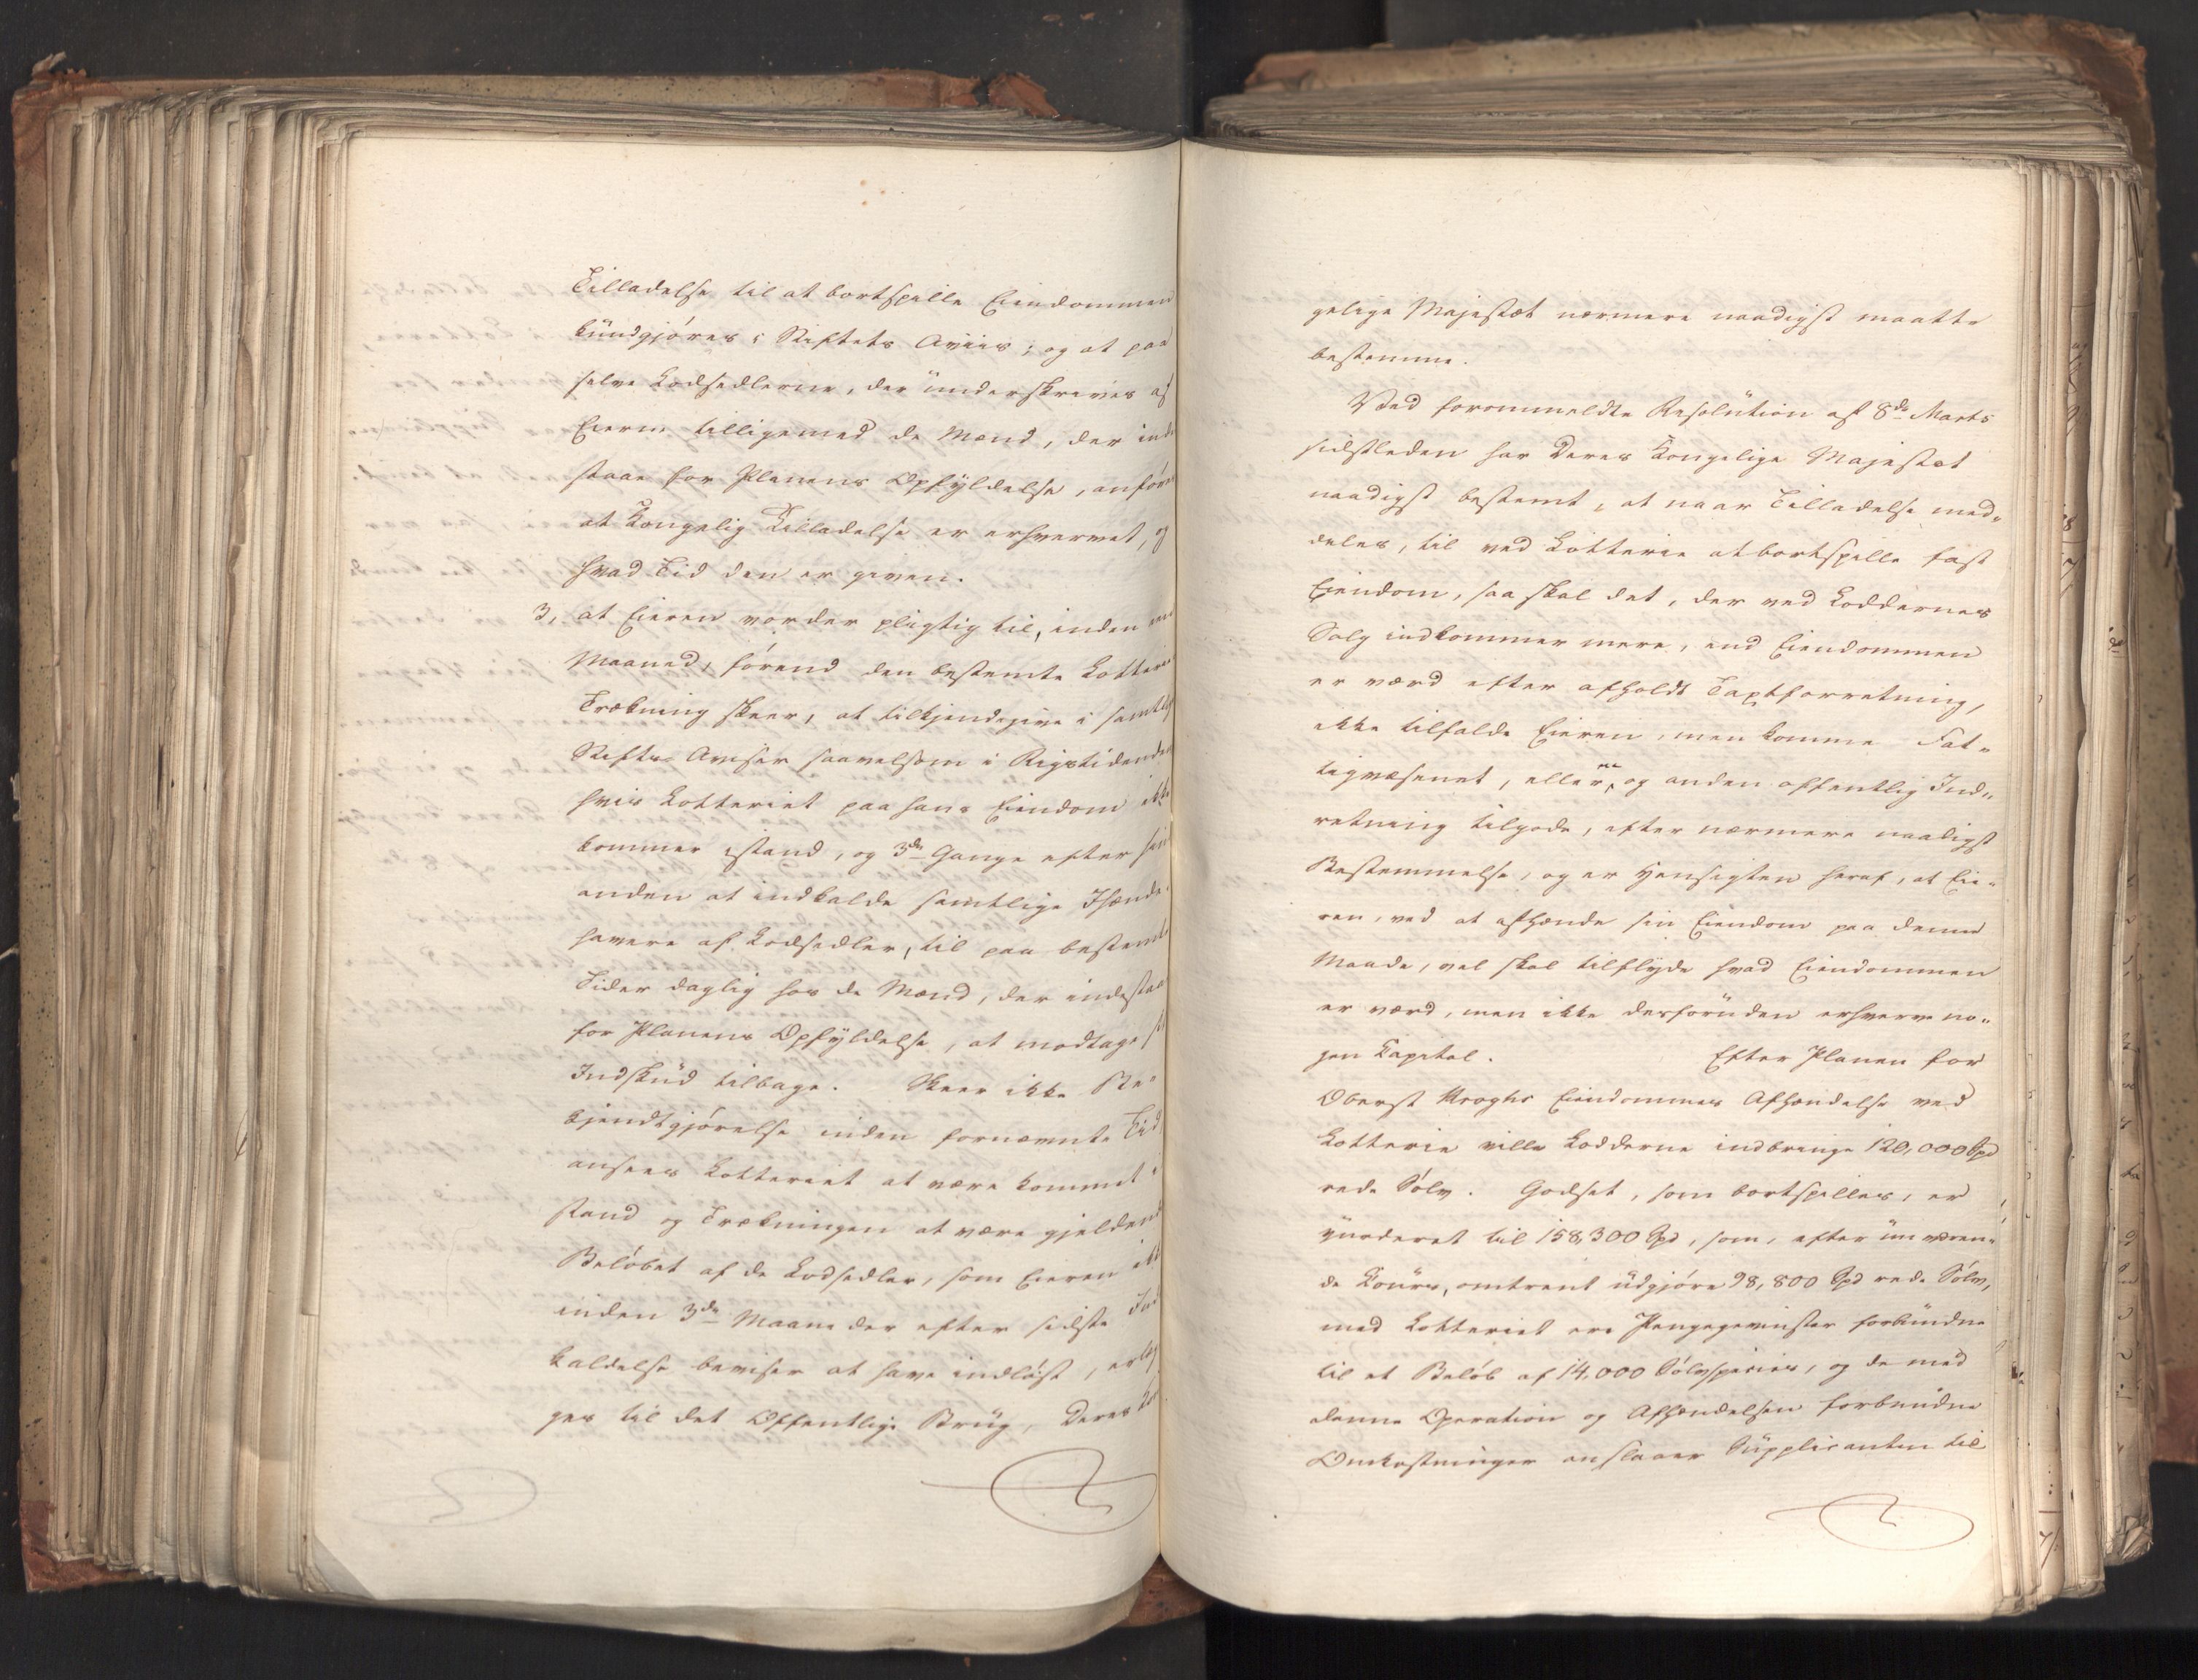 Tilladelse til at bortspille Eiendommen
kundgjøres i Stiftets Aviis; og at paa
selve Lodsedlerne, der underskrives af
Eieren tilligemed de Mænd, der inde
staae for Planens Opfyldelse, anføres
at Kongelig Tilladelse er erhvervet, og
hvad Tid den er given.
3, at Eieren vorder pligtig til, inden een
Maaned, førend den bestemte Lotterie
Trækning skeer, at tilkjendegive i samtlige
Stifts Aviser saavelsom i Rigstidenden
hvis Lotteriet paa hans Eiendom ikke
kommer istand, og 3de Gange efter hin
anden at indkalde samtlige Ihænde-
havere af Lodsedler, til paa bestemte
Tider daglig hos de Mænd, der indestaae
for Planens Opfyldelse, at modtage
Indskud tilbage. Skeer ikke Be-
kjendtgjørelse inden fornævnte Tid,
ansees Lotteriet at være kommet i
stand og Trækningen at være gjeldende
Beløbet af de Lodsedler, som Eieren ikke
inden 3de Maaneder efter sidste Ind
kaldelse beviser at have indløst, erlæg
ges til det Offentliges Brug, Deres Kon
gelige Majestæt nærmere naadigst maatte
bestemme.
Ved forommeldte Resolution af 8de Marts
sidstleden har Deres Kongelige Majestæt
naadigst bestemt, at naar Tilladelse med-
deles, til ved Lotterie at bortspille fast
Eiendom, saa skal det, der ved Loddernes
Salg indkommer mere, end Eiendommen
er værd efter afholdt Taxtforretning,
ikke tilfalde Eieren, men komme Fat-
tigvæsenet, eller en og anden offentlig Ind-
retning tilgode, efter nærmere naadigst
Bestemmelse, og er Hensigten heraf, at Eie-
ren, ved at afhænde sin Eiendom paa denne
Maade, vel skal tilflyde hvad Eiendommen
er værd, men ikke desforuden erhverve no-
gen Capital. Efter Planen for
Oberst Kroghs Eiendommes Afhændelse ved
Lotterie ville Lodderne indbringe 120,000 Spd
rede Sølv. Godset, som bortspilles, er
vurderet til 158,300 Spd, som, efter nu væren-
de Cours, omtrent udgjøre 98,800 Spd rede Sølv,
med Lotteriet ere Pengegevinster forbundne
til et Beløb af 14,000 Sølvspecies, og de med
denne Operation og Afhændelsen forbundne
Omkostninger anslaaer Supplicanten til